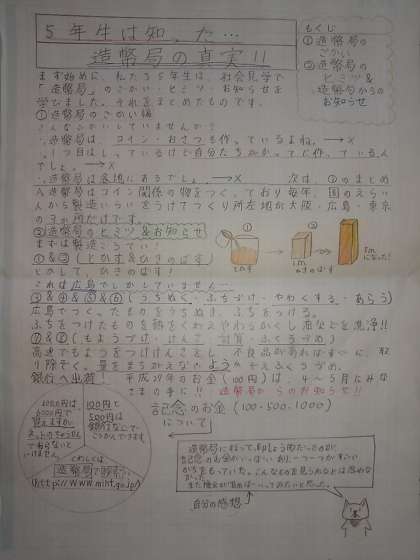 5年生は知った…
造幣局の真実!!
もくじ
①造幣局の
ごかい
②造幣局の
ヒミツ&
造幣局からの
お知らせ
まず始めに、私たち5年生は、社会見学で
「造幣局」のごかい・ヒミツ・お知らせを
学びました。それをまとめたものです。
①造幣局のごかい編
こんなごかいしていませんか?
造幣局は、コイン・おさつも作っているよね。→×
でしょ。→×
造幣局は各地にあるでしょ。→× 次は、②のまとめ
造幣局はコイン関係の物をつくっており毎年、国のえらい
人から製造いらいをうけてつくり所在地が大阪・広島・東京
の3ヶ所だけです。
②造幣局のヒミツ&お知らせ
まずは製造こうてい!
①&②(とかす&ひきのばす)
とかして、ひきのばす!
これは広島でしかしていません…
① とかす
② のきのばす
になった!
③&④&⑤&⑥(うちぬく・ふちづけ・やわくする・あらう)
広島でつくったものをうちぬき、ふちをつける。
ふちをつけたものを熱をくわえやわらかくし酒などを洗浄!!
⑦&⑧(もようづけ・けんさ 計算・ふくろづめ)
高速でもようをつけけんさし、不良品があればすべに、取
り除ぞく。量をまちがえないようかぞえふくろづめ。
銀行へ出荷! 平成29年のお金(100円)は、4~5月にみな
さまの手に!! 造幣局からのお知らせ!!
記念のお金(100・500・1000)
について
1000円は
6000円で
買えますが
であらないと
いけません。
100円と
500円は
銀行などで
こうかんできます。
くわしくは
造幣局で検索
(http://www.mint.go.jp/)
造幣局に行って、印しょう的だったのが
記念のお金がいっぱいあり、一つ一つがすごい
かちをもっていた。こんなものを見られるとは思わな
かった。
また機会があればいってみたいと思った。
自分の感想